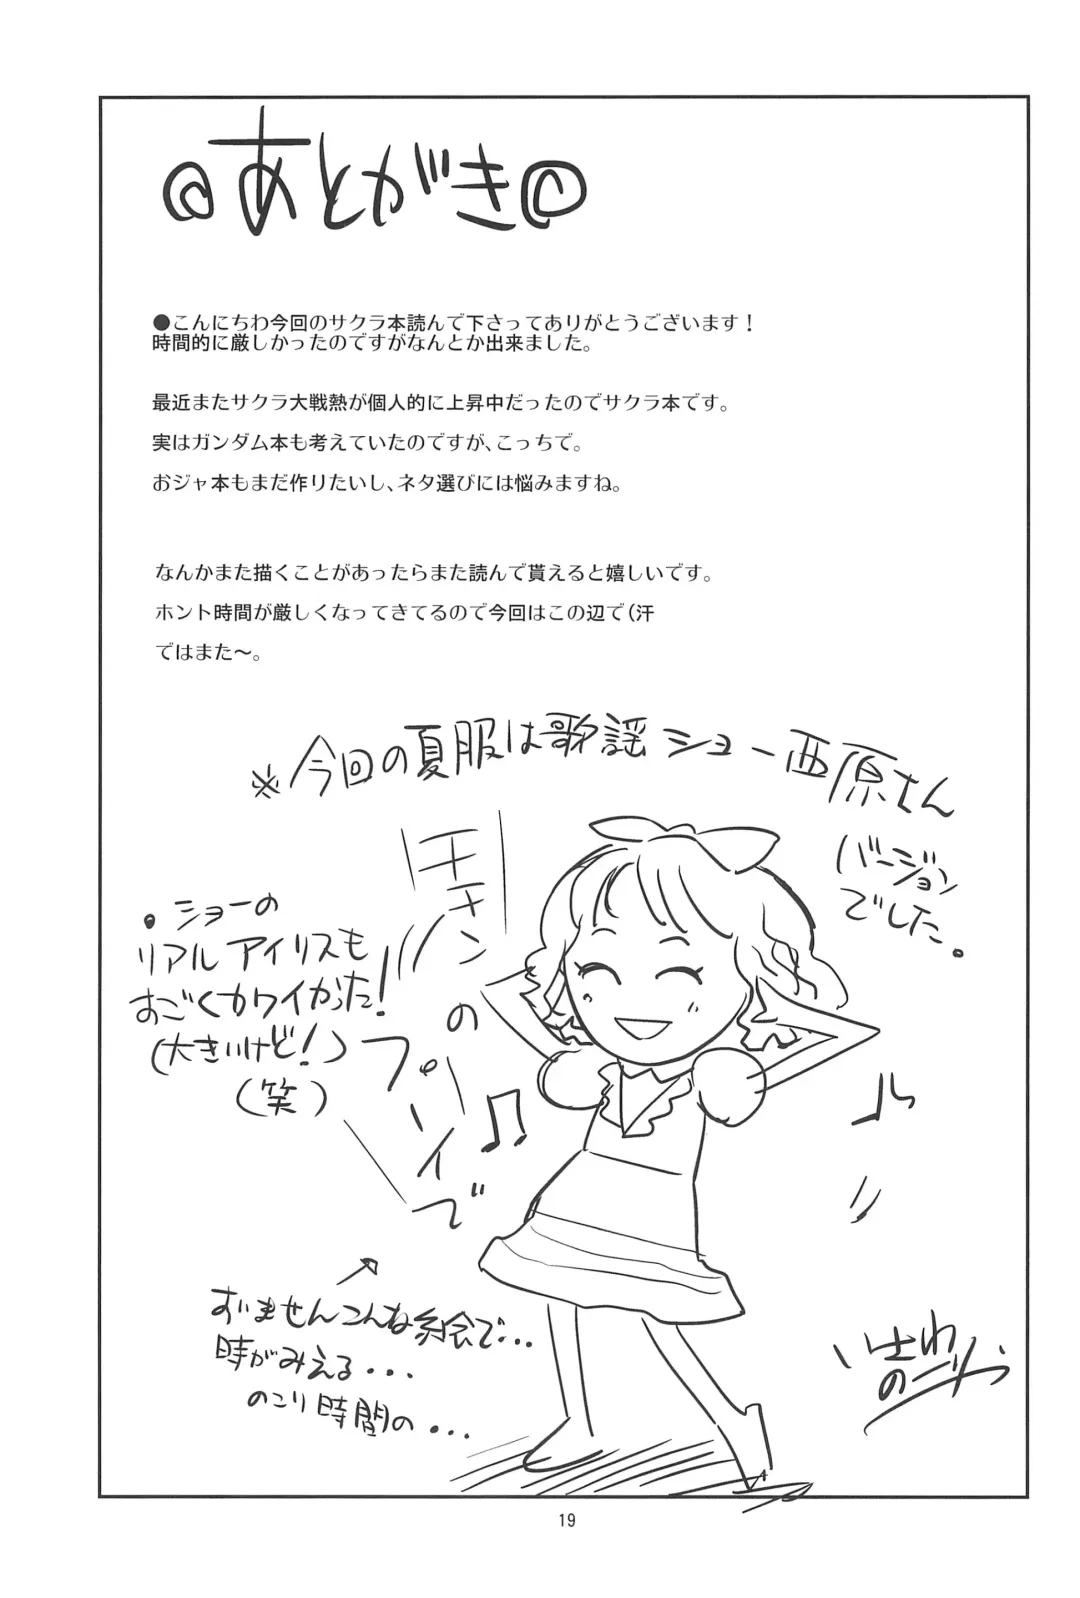 @あとがき@
●こんにちわ今回のサクラ本読んで下さってありがとうございます！
時間的に厳しかったのですがなんとか出来ました。
最近またサクラ大戦熱が個人的に上昇中だったのでサクラ本です。
実はガンダム本も考えていたのですが、こっちで。
おジャ本もまだ作りたいし、ネタ選びには悩みますね。
なんかまた描くことがあったらまた読んで貰えると嬉しいです。
ホント時間が厳しくなってきてるので今回はこの辺で(汗
ではまた～。
※今回の夏服は歌謡ショー西原さん
バージョン
でした。
・ショーの
リアルアイリスも
すごくカワイかった！
(大きいけど！)
(笑)
キキン
の
で
すいませんこんな絵で・・・
時がみえる・・・
のこり時間の・・・
いさわ
のーり
19